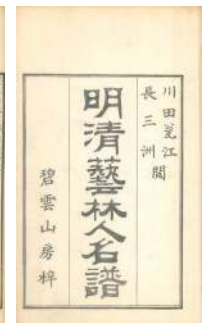 川田甕江
長三洲 閲
明清藝林人名譜
碧雲山房梓